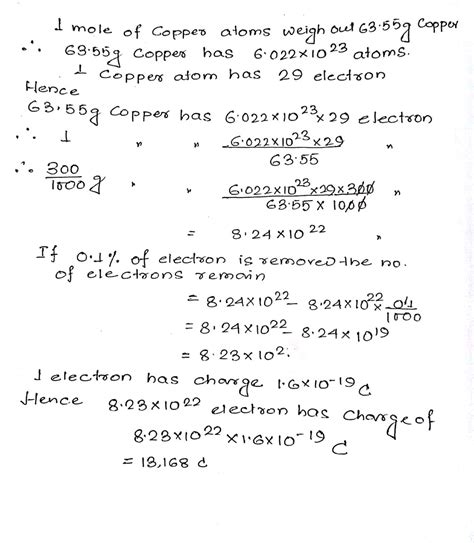 1 mole of Copper atoms weigh out 63.55g Copper
∴ 63.55g Copper has 6.022×10²³ atoms.
1 Copper atom has 29 electron
Hence
63.55g Copper has 6.022×10²³×29 electron
∴ 1 " " 6.022×10²³×29 / 63.55 "
∴ 300/1000 g " " 6.022×10²³×29×300 / 63.55×1000 "
= 8.24×10²² "
If 0.1% of electron is removed the no.
of electrons remain
= 8.24×10²² - 8.24×10²² × 0.1/1000
= 8.24×10²² - 8.24×10¹⁹
= 8.23×10²
1 electron has charge 1.6×10⁻¹⁹ C
Hence 8.23×10²² electron has charge of
8.23×10²²×1.6×10⁻¹⁹ C
= 13,168 C